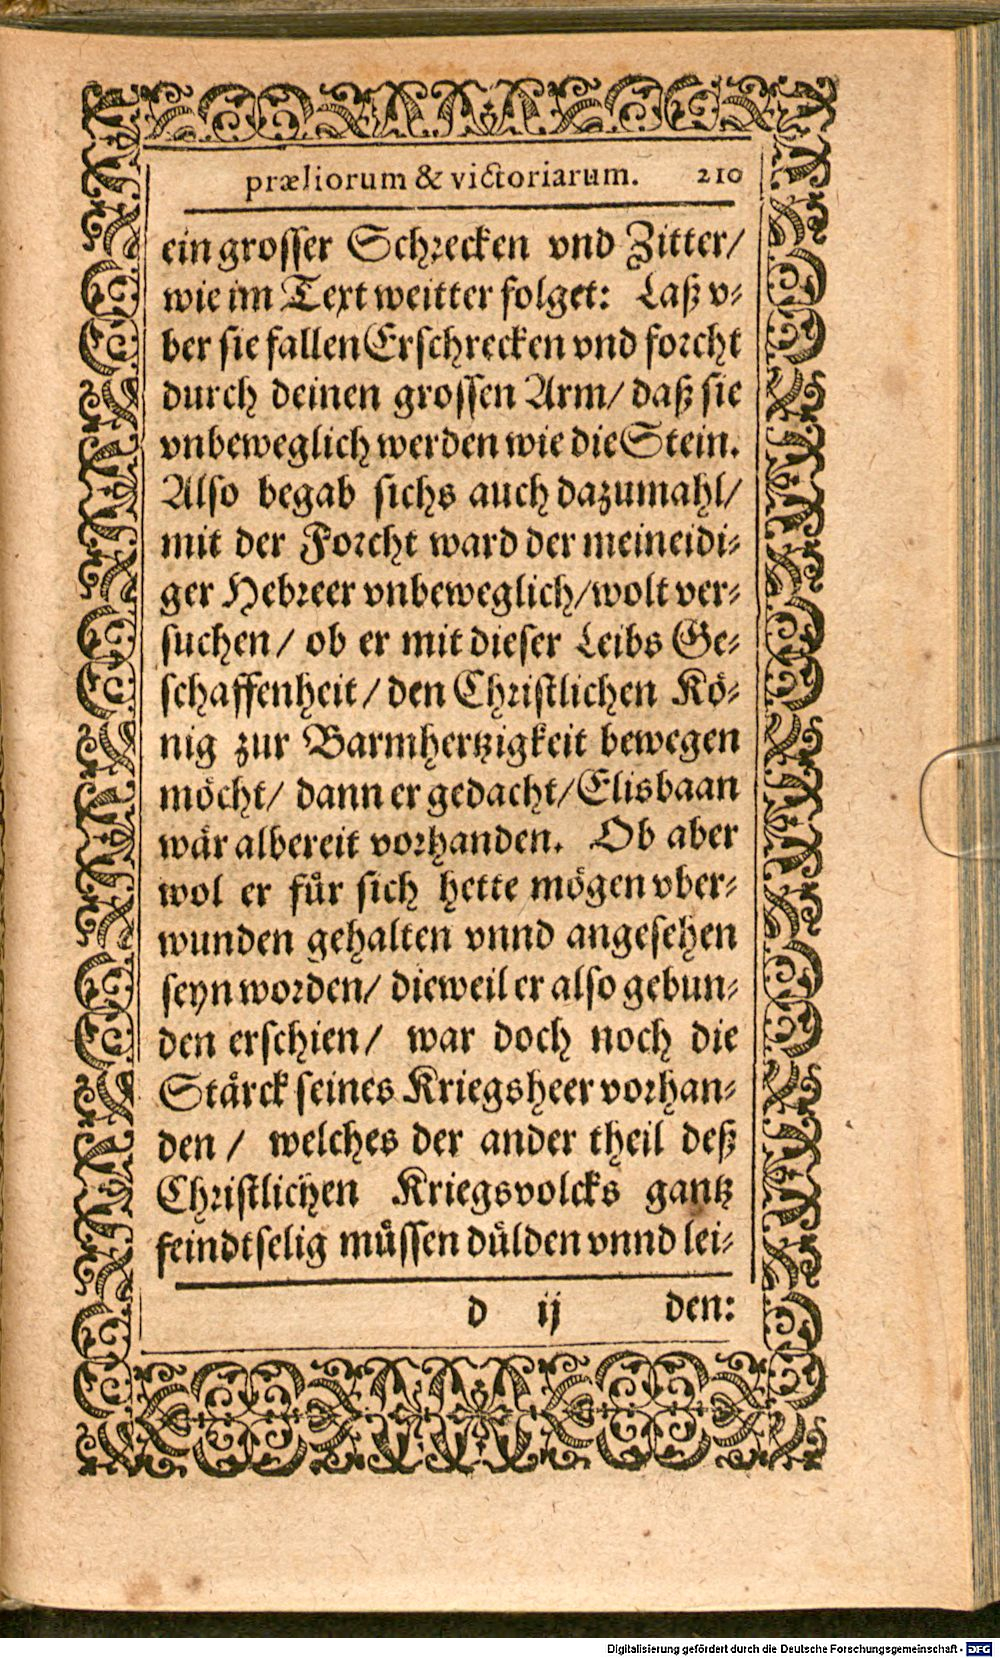 præliorum & victoriarum. 210
ein grosser Schrecken vnd Zitter/
wie im Text weitter folget: Laß v⸗
ber sie fallen Erschrecken vnd forcht
durch deinen grossen Arm/ daß sie
vnbeweglich werden wie die Stein.
Also begab sichs auch dazumahl/
mit der Forcht ward der meineidi⸗
ger Hebreer vnbeweglich/wolt ver⸗
suchen/ ob er mit dieser Leibs Ge⸗
schaffenheit/ den Christlichen Kö⸗
nig zur Barmhertzigkeit bewegen
möcht/ dann er gedacht/Elisbaan
wär albereit vorhanden. Ob aber
wol er für sich hette mögen vber⸗
wunden gehalten vnnd angesehen
seyn worden/ dieweil er also gebun⸗
den erschien/ war doch noch die
Stärck seines Kriegsheer vorhan⸗
den/ welches der ander theil deß
Christlichen Kriegsvolcks gantz
feindtselig müssen dülden vnnd lei⸗
d ij den:
Digitalisierung gefördert durch die Deutsche Forschungsgemeinschaft - DFG